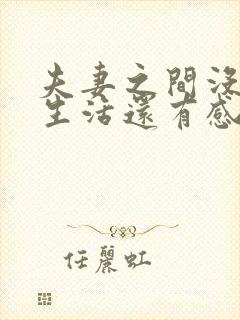 夫妻之間沒
生活還有感
任麗虹